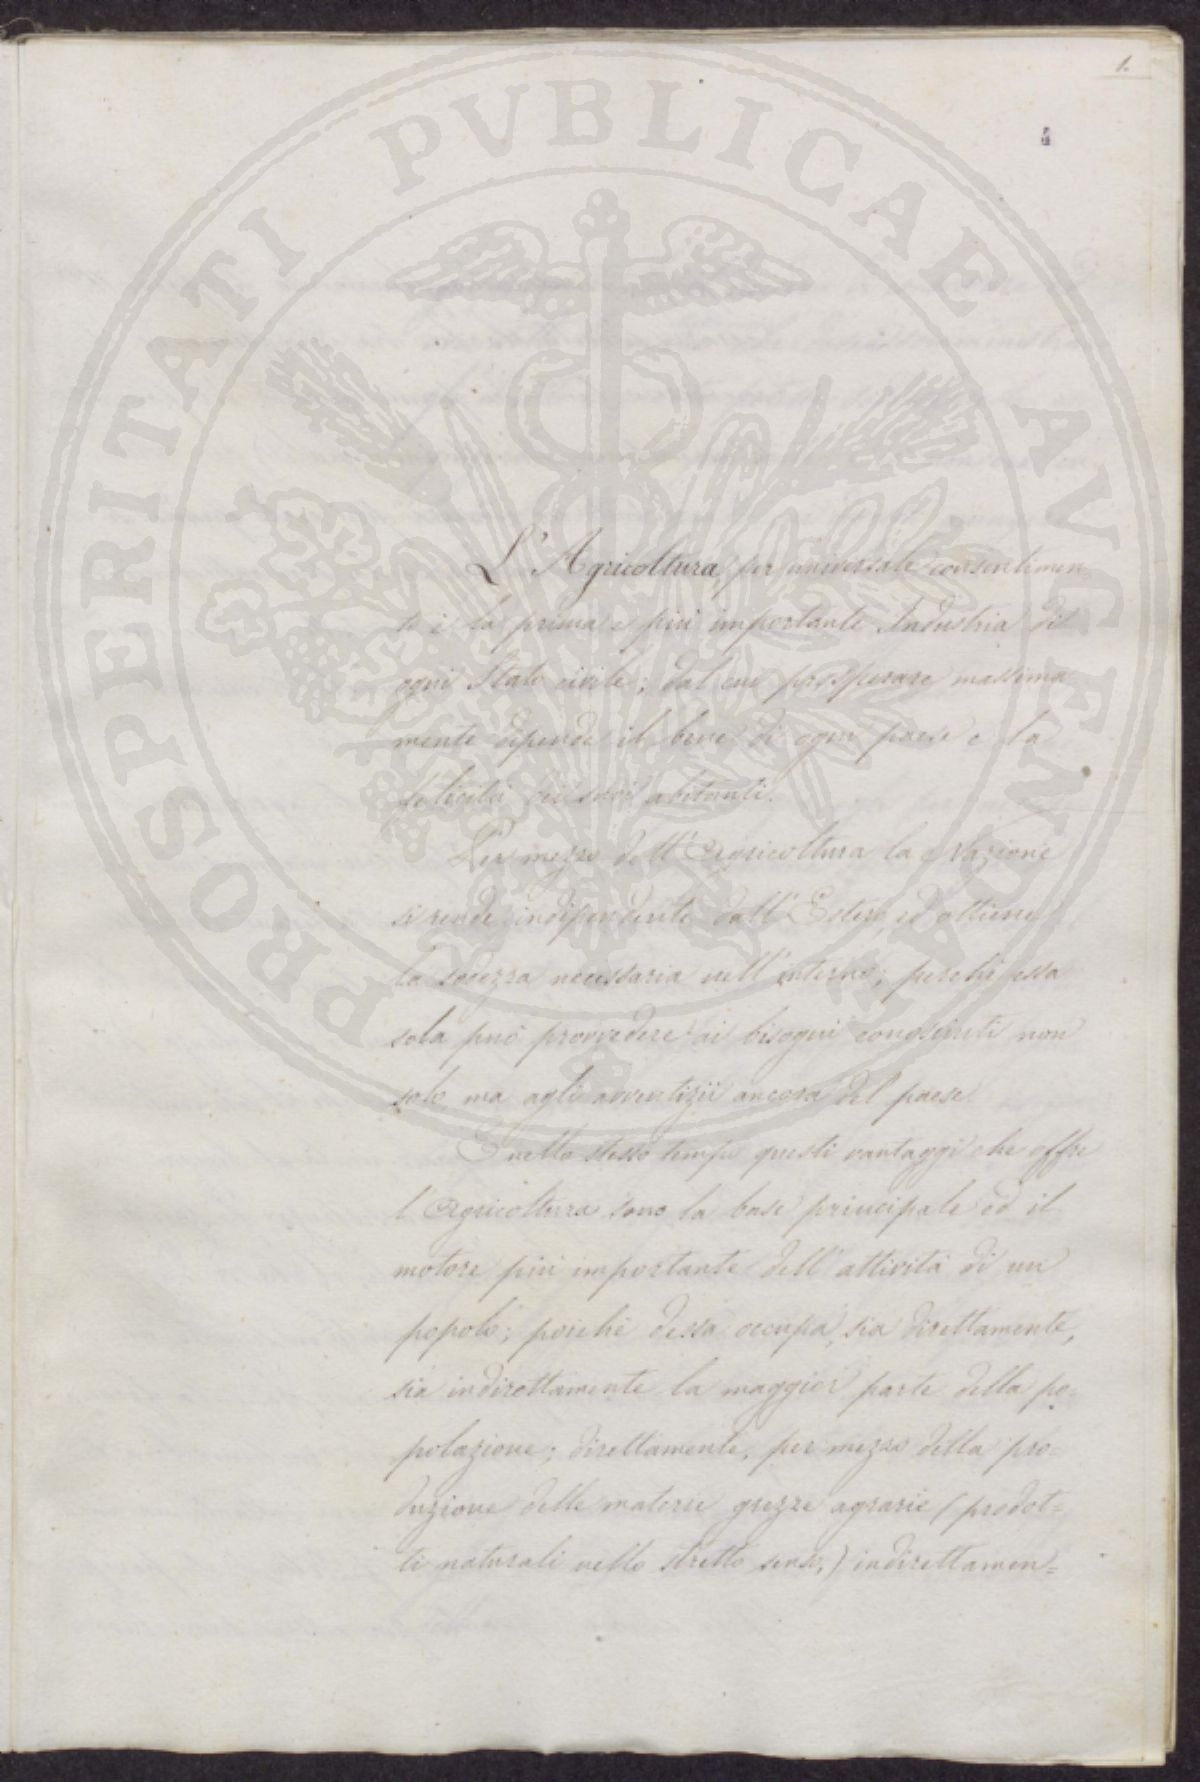 1.
PROSPERITATI PVBLICAE AVGENDAE
L'Agricoltura, per universale consentimen=
to è la prima e più importante Industria di
ogni Stato civile; dal cui prosperare massima
mente dipende il bene di ogni paese e la
felicità dei suoi abitanti.
Per mezzo dell'Agricoltura la Nazione
si rende indipendente dall'Estero, ed ottiene
la sodezza necessaria nell'interno; perchè essa
sola può provvedere ai bisogni conosciuti non
solo ma agli avventizii ancora del paese.
E nello stesso tempo questi vantaggi che offre
l'Agricoltura sono la base principale ed il
motore più importante dell'attività di un
popolo; poichè dessa occupa, sia direttamente,
sia indirettamente la maggior parte della po=
polazione; direttamente, per mezzo della pro=
duzione delle materie grezze agrarie (prodot=
ti naturali nello stretto senso,) indirettamen=